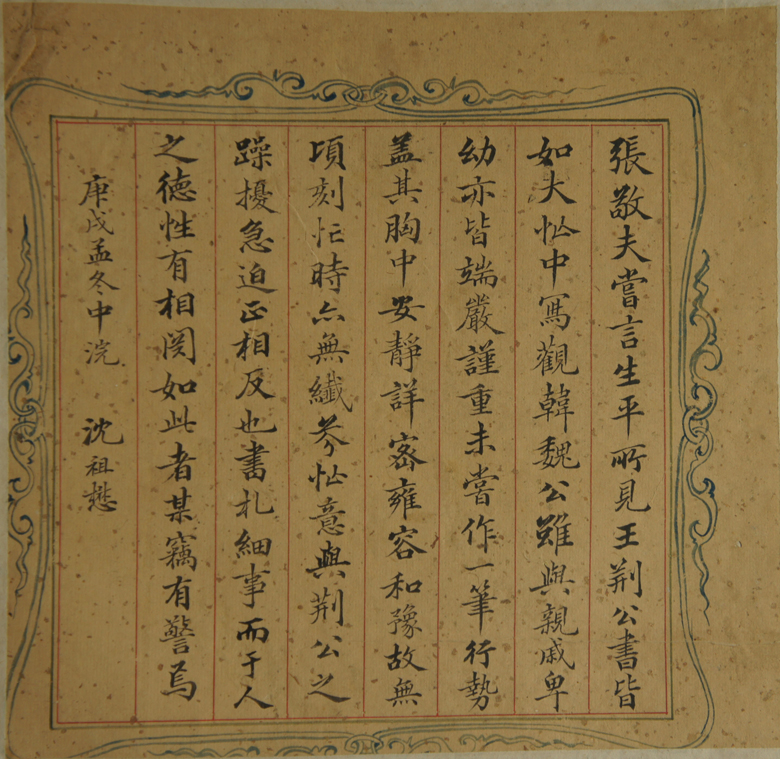 張敬夫嘗言生平所見王荆公書皆
如大忙中寫觀韓魏公雖與親戚卑
幼亦皆端嚴謹重未嘗作一筆行勢
盖其胸中安靜詳密雍容和豫故無
頃刻忙時亦無纖芥忙意與荆公之
躁擾急迫正相反也書札細事而于人
之德性有相関如此者某竊有警焉
庚戌孟冬中浣 沈祖懋